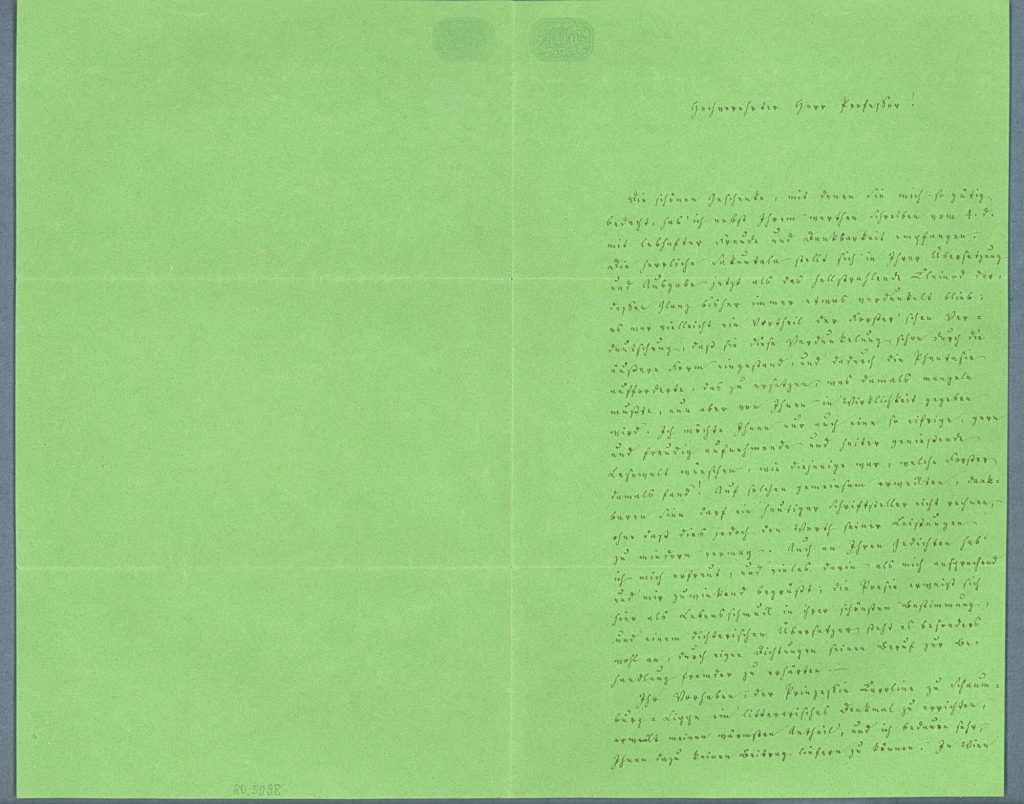 Hochverehrter Herr Professor!
Die schönen Geschenke, mit denen Sie mich so gütig
bedacht, hab' ich nebst Ihrem werthen Schreiben vom 4. d.
mit lebhafter Freude und Dankbarkeit empfangen.
Die herrliche Sakuntala stellt sich in Ihrer Übersetzung
und Ausgabe jetzt als das hellstrahlende Kleinod dar,
dessen Glanz bisher immer etwas verdunkelt blieb;
es war vielleicht ein Vortheil der Forster'schen Ver-
deutschung, daß sie diese Verdunkelung schon durch die
äußere Form eingestand, und dadurch die Phantasie
aufforderte, das zu ersetzen, was damals mangeln
mußte, nun aber von Ihnen in Wirklichkeit gegeben
wird. Ich möchte Ihnen nur auch eine so eifrige, gern
und freudig aufnehmende und heiter genießende
Lesewelt wünschen, wie diejenige war, welche Forster
damals fand! Auf solchen gemeinsam erweckten, dank-
baren Sinn darf ein heutiger Schriftsteller nicht rechnen,
ohne daß dies jedoch den Werth seiner Leistungen
zu mindern vermag. Auch an Ihren Gedichten hab'
ich mich erfreut, und vieles darin als mich ansprechend
und mir zuwinkend begrüßt; die Poesie erweist sich
hier als Lebensschmuck in ihrer schönsten Bestimmung,
und einem dichterischen Übersetzer steht es besonders
wohl an, durch eigne Dichtungen seinen Beruf zur Be-
handlung fremder zu erhärten. —
Ihr Vorhaben, der Prinzessin Caroline zu Schaum-
burg-Lippe ein litterarisches Denkmal zu errichten,
erweckt meinen wärmsten Antheil, und ich bedaure sehr,
Ihnen dazu keinen Beitrag liefern zu können. In Wien